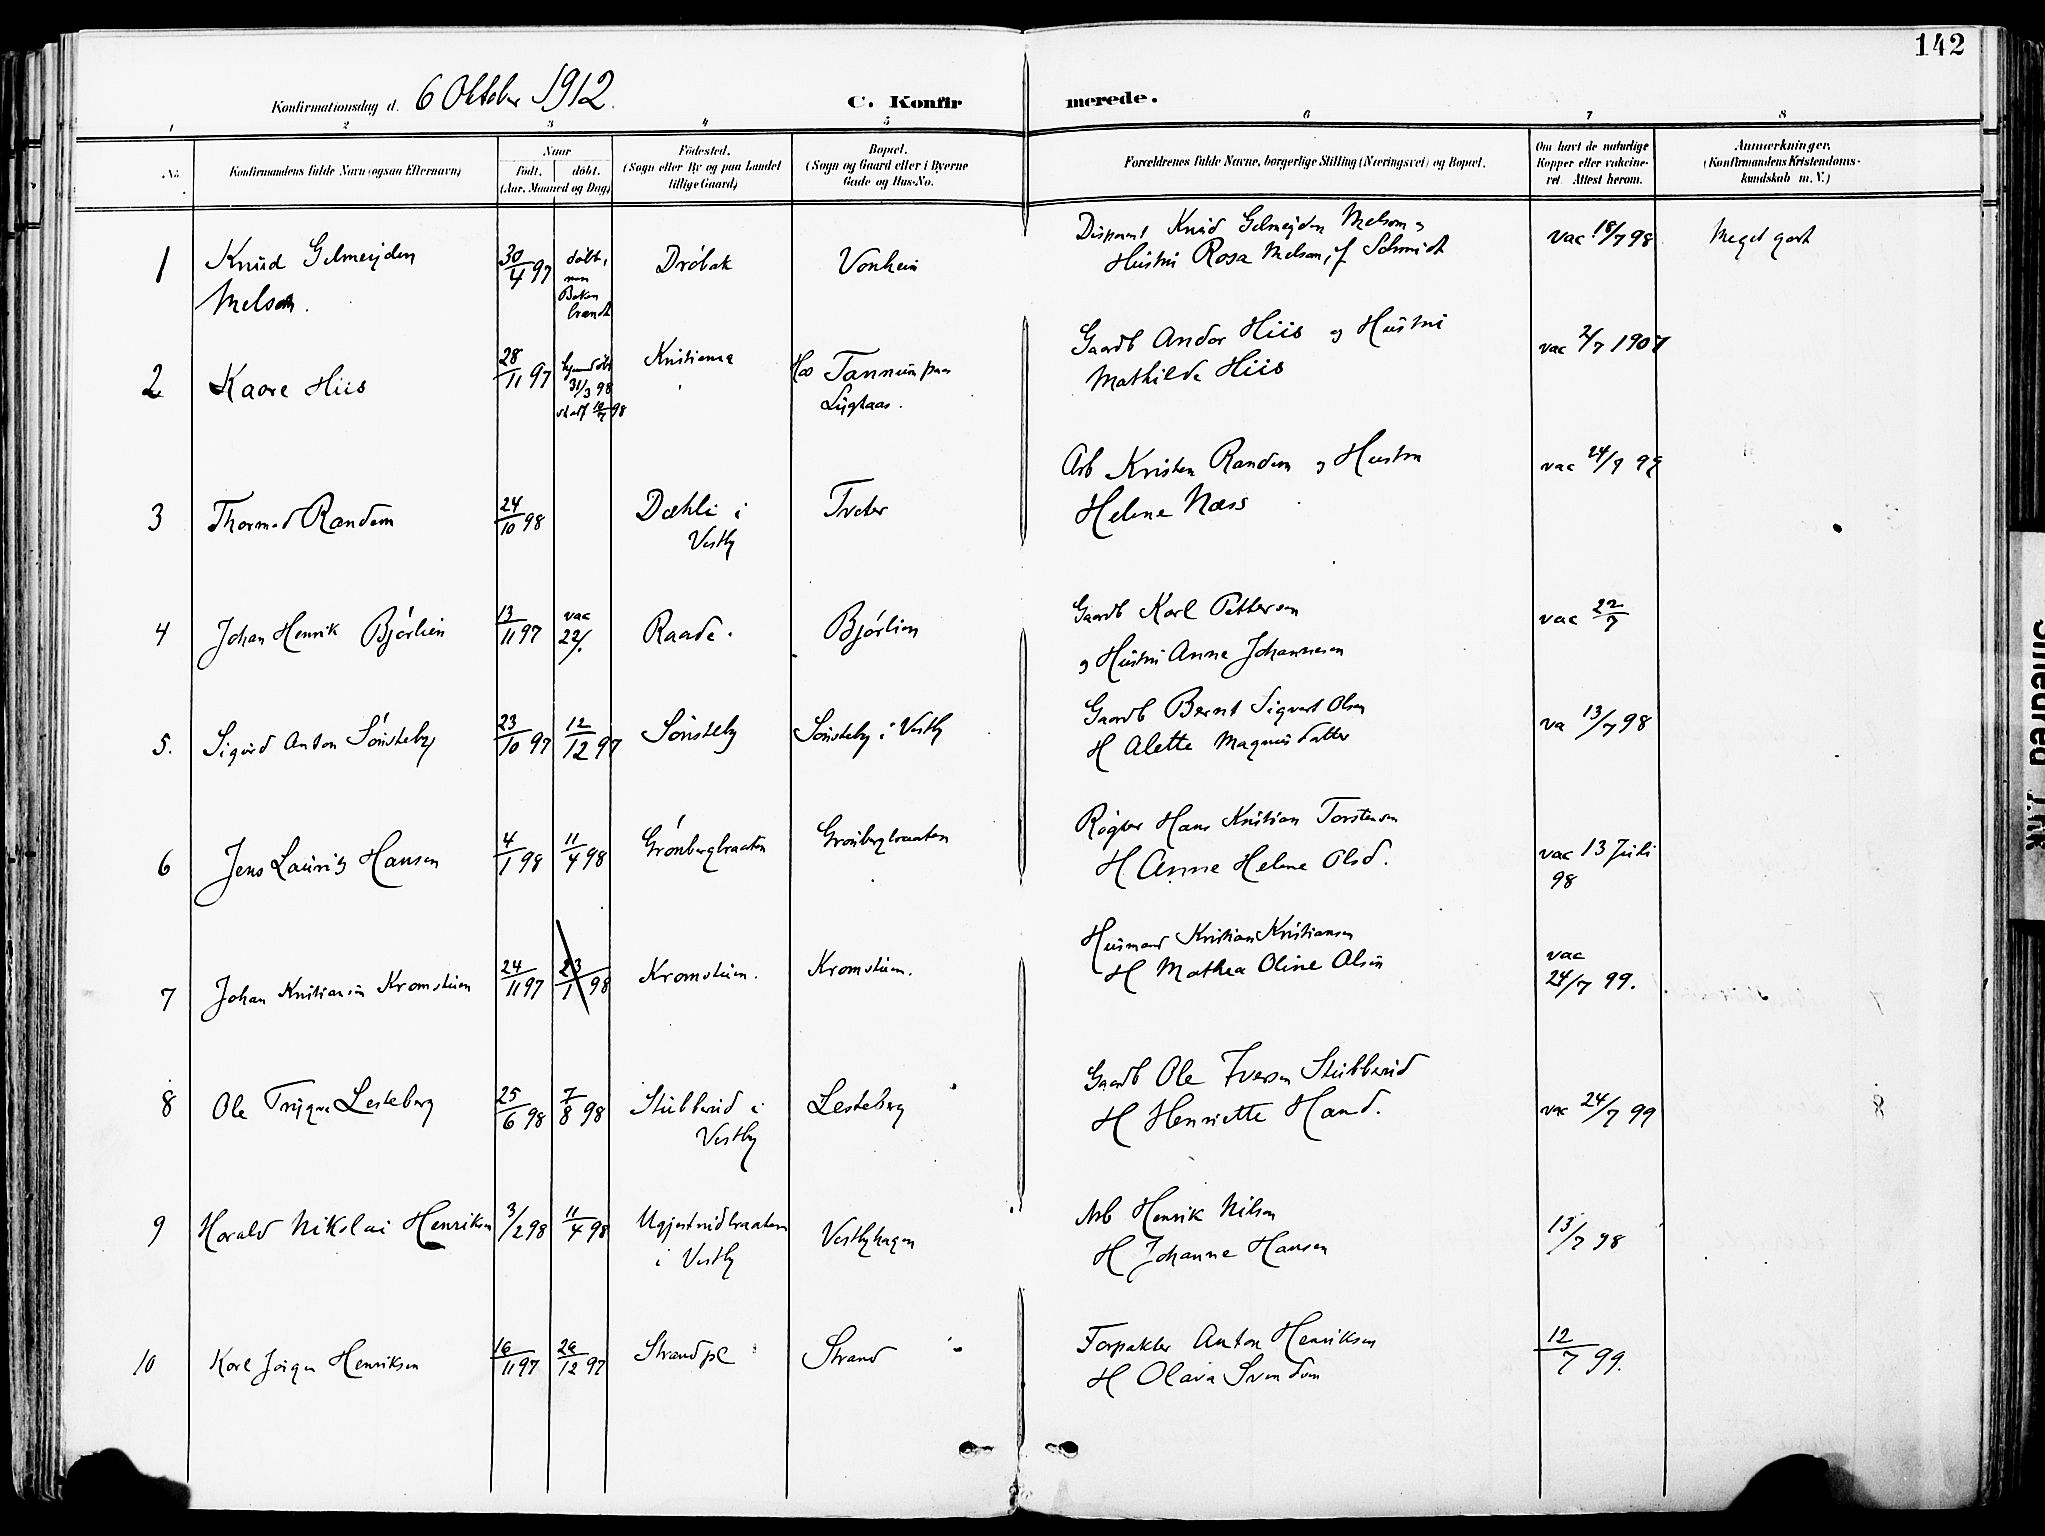 142
Konfirmationsdag d. 6 Oktober 1912.
C. Konfirmerede.
1 2 3 4 5 6 7 8
No.
Konfirmandens fulde Navn (ogsaa Efternavn)
Naar
födt. döbt.
(Aar, Maaned og Dag)
Födested.
(Sogn eller By og paa Landet
tillige Gaard)
Bopæl.
(Sogn og Gaard eller i Byerne
Gade og Hus-No.
Forældrenes fulde Navne, borgerlige Stilling (Næringsvei) og Bopæl.
Om havt de naturlige
Kopper eller vakcine-
ret. Attest herom.
Anmærkninger.
(Konfirmandens Kristendoms-
kundskab m. V.)
1 Knud Gelmeyden 30/4 97 döbt, Dröbak Vonheim Disponent Knud Gelmeyden Melsom og vac 18/7 98 Meget godt
Melsom. Hustru Rosa Melsom, f Schmidt
brændt
2 Kaare Hiis 28/11 97 hjemdöbt 31/3 98 Kristiania Tannum paa Gaardb Andor Hiis og Hustru vac 2/7 1907
Mathilde Hiis
3 Thormod Randem 24/10 98 Dæhli i Tveter Arb Kristen Randem og Hustru vac 24/7 99
Vestby Helene Næss
4 Johan Henrik Bjørlien 13/11 97 vac Raade. Bjørlien Gaardb Karl Pettersen vac 22/7
22/. og Hustru Anne Johannesen
5. Sigurd Anton Sönsteby 23/10 97 12/12 97 Sönsteby Sönsteby i Vestby Gaardb Bernt Sigvart Olsen va 13/7 98
H Alette Magnusdatter
6 Jens Lauritz Hansen 4/1 98 11/4 98 Grönbergbraaten Grönbergbraaten Rögter Hans Kristian Torstensen vac 13 Juli
H Anne Helene Olsd. 98
7 Johan Kristiansen Kromstuen 24/11 97 23/1 98 Kromstuen. Kromstuen. Husmand Kristian Kristiansen vac
H Mathea Oline Olsen 24/7 99.
8 Ole Trygve Lesteberg 25/6 98 7/8 98 Stubberud i Lesteberg Gaardb Ole Iversen Stubberud vac 24/7 99
Vestby H Henriette Hansd.
9 Harald Nikolai Henriksen 3/2 98 11/4 98 Vestbyhagen Arb Henrik Nilsen 13/7 98
i Vestby H Johanne Hansen
10 Karl Jörgen Henriksen 16/11 97 26/12 97 Strandpl Strand Forpakter Anton Henriksen 12/7 99.
H Olava Svendsen